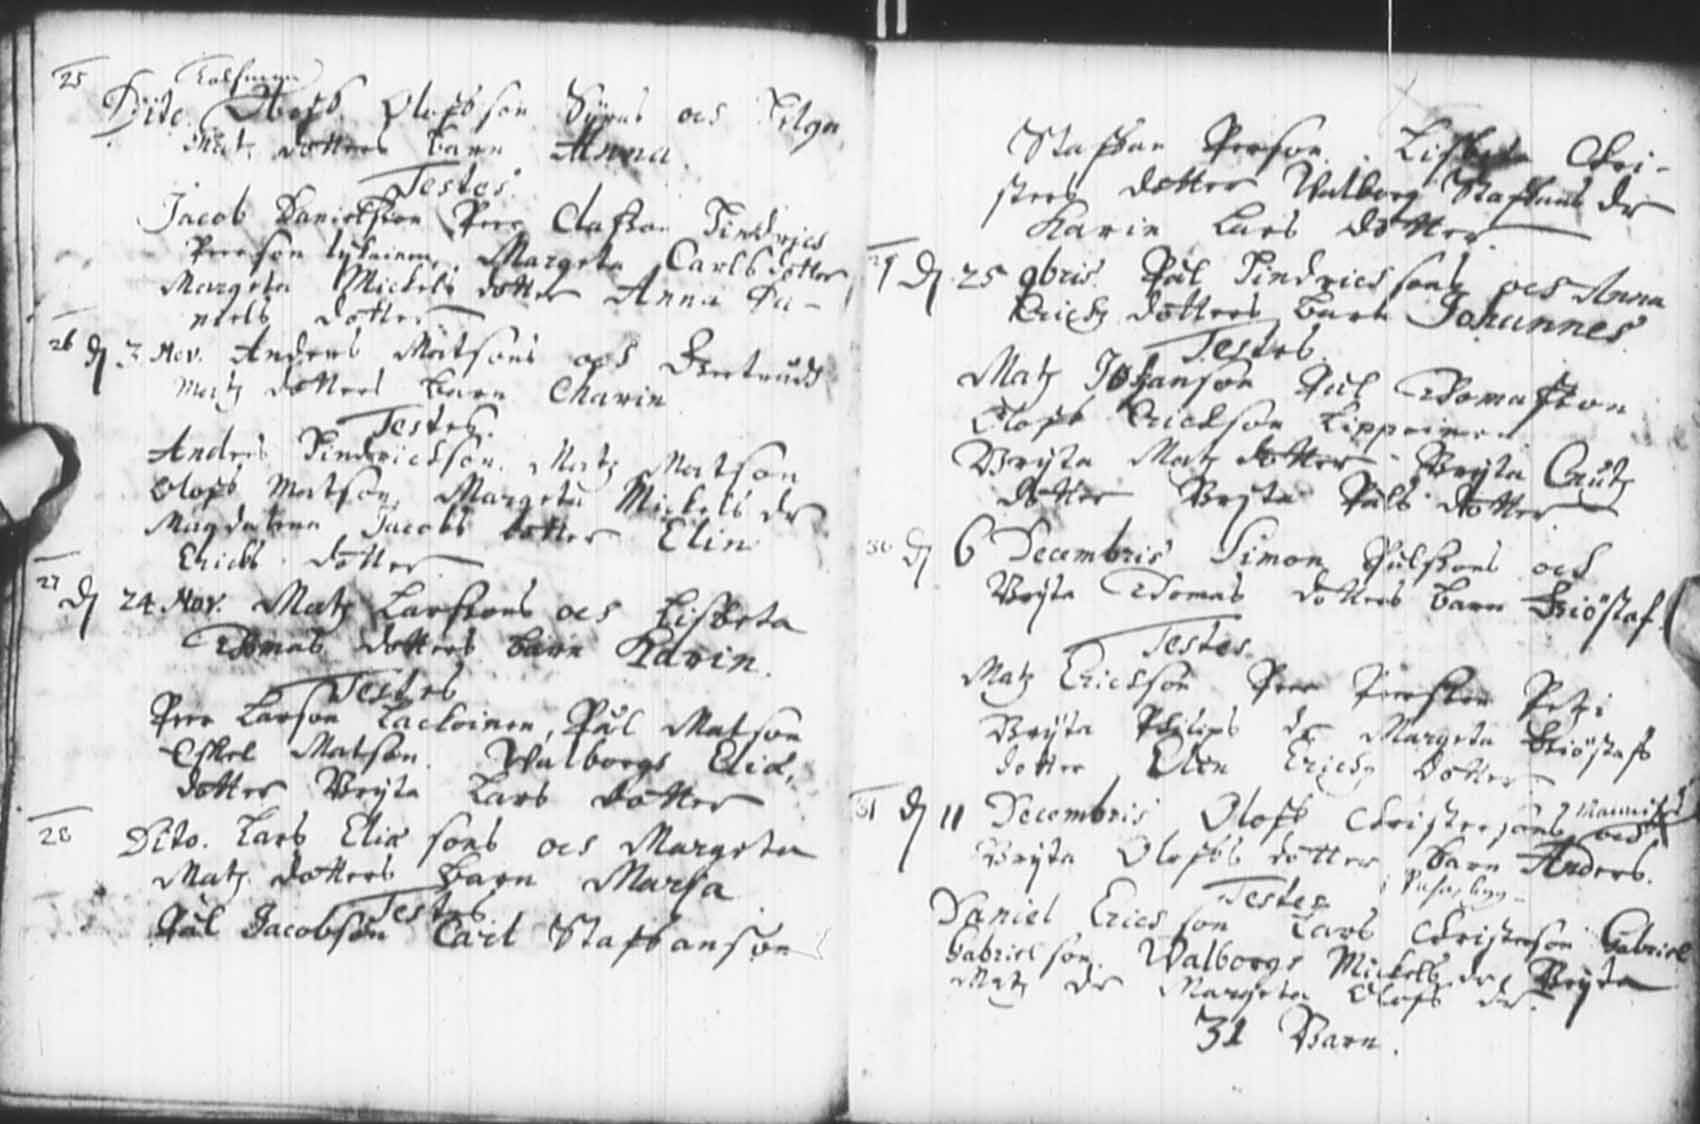 25
Dito. Oloff Olofsson Syrus och Helga
Matz dotters barn Anna.
Testes
Jacob Danielsson Peer Clafson Hindrics
Peerson Margeta Carls dotter
Margeta Mickels dotter Anna Da-
niels dotter
26 dj 3 Nov. Anders Matsons och Geertrudz
Matz dotters barn Charin
Testes.
Anders Hindricksson. Matz Matson
Oloff Matson, Margeta Mickels dr
Magdalena Jacobs dotter Elin
Ericks dotter
27 dj 24 Nov. Matz Larssons och Lisbeta
Thomas dotters barn Karin.
Testes
Peer Larson Lackoinen, Pål Matson
Eskel Matson. Walborgs Eliæ
dotter Bryta Lars dotter
28 Dito. Lars Eliæ sons och Margeta
Matz dotters barn Maria
Testes
Pål Jacobson Carl Staffanson
Staffan Person. Chri-
sters dotter Walborg Staffans dr
Karin Lars dotter.
dj 25 9bris. Pål Hindrics sons och Anna
Ericks dotters barn Johannes
Testes.
Matz Johanson Pål Thomasson
Oloff Erickson
Bryta Matz dotter Bryta Knutz
dotter Bryta Påls dotter
30 dj 6 Decembris Simon Pålssons och
Bryta Thomas dotters barn Kriöstaf
Testes.
Matz Erickson Peer Peersson
Bryta Philips dr Margeta Kriöstafs
dotter Elin Ericks dotter
31 dj 11 Decembris Oloff Christersons och
Bryta Olofs dotter barn Anders.
Testes
Daniel Ericsson Lars Christerson Gabriel
Gabrielson. Walborgs Mickels dr Bryta
Matz dr Margeta Olofs dr.
31 Barn.